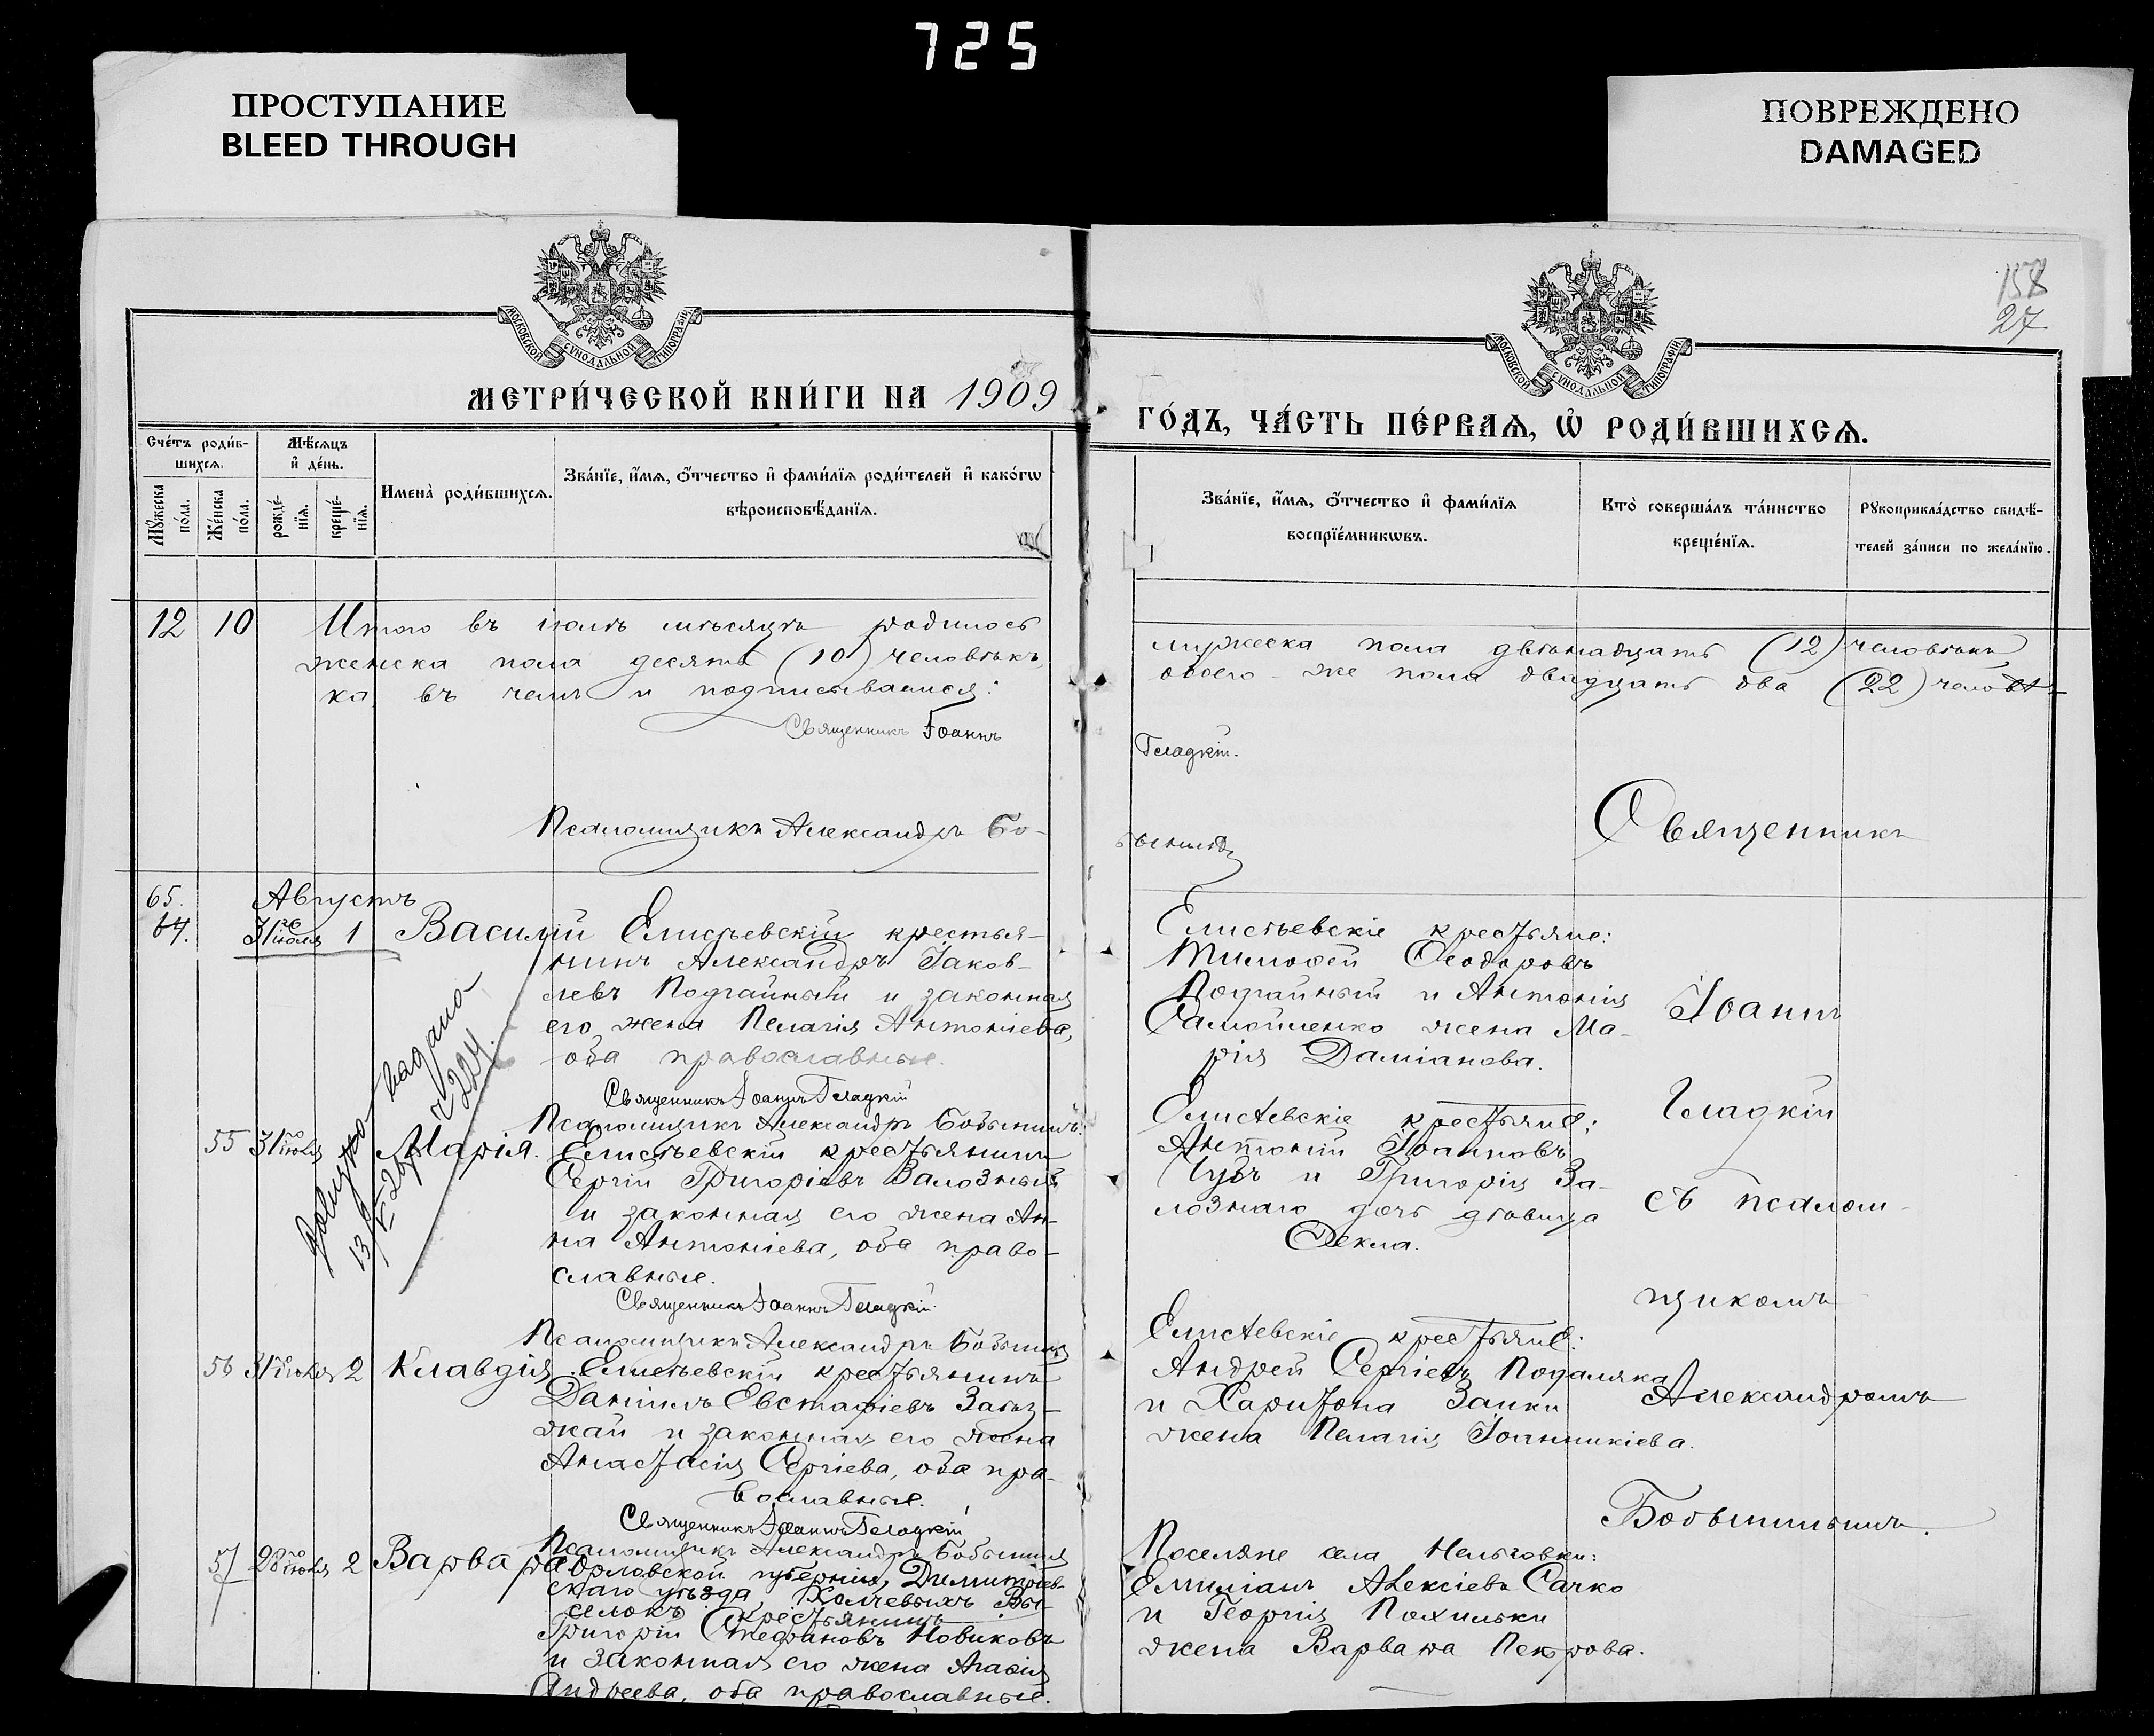 725
ПРОСТУПАНИЕ
BLEED THROUGH
ПОВРЕЖДЕНО
DAMAGED
158
27
МОСКОВСКОЙ СѴНОДАЛЬНОЙ ТИПОГРАФІИ
МОСКОВСКОЙ СѴНОДАЛЬНОЙ ТИПОГРАФІИ
МЕТРИ́ЧЕСКОЙ КНИ́ГИ НА 1909
ГО́ДЪ, ЧА́СТЬ ПЕ́РВАѦ, Ѡ҆ РОДИ́ВШИХСѦ.
Сче́тъ роди́в-
шихсѧ.
Мꙋ́жеска по́ла.
Же́нска по́ла.
Мѣ́сѧцъ
и҆ де́нь.
рожде́-
нїѧ.
креще́-
нїѧ.
Имена̀ роди́вшихсѧ.
Зва́нїе, и҆́мѧ, ѻ҆́тчество и҆ фами́лїѧ роди́телей и҆ како́гѡ
вѣроисповѣ́данїѧ.
Зва́нїе, и҆́мѧ, ѻ҆́тчество и҆ фами́лїѧ
воспрїе́мникѡвъ.
Кто̀ соверша́лъ та́инство
креще́нїѧ.
Рꙋкоприкла́дство свидѣ́-
телей за́писи по жела́нїю.
12 10 Итого въ іюлѣ мѣсяцѣ родилось
женска пола десять (10) человѣкъ,
ка въ чемъ и подписываемся:
Священникъ Іоаннъ
Псаломщикъ Александръ Бо-
мужеска пола двѣнадцать (12) человѣкъ,
обоего же пола двадцать два (22) человѣ-
Гладкій.
Священникъ
65. Августъ
64. 31го іюля 1 Василій Елисѣевскій крестья-
нинъ Александръ Іаков-
левъ Подгайный и законная
его жена Пелагія Антоніева,
оба православные.
Священникъ Іоаннъ Гладкій
Псаломщикъ Александръ
Елисѣевскіе крестьяне:
Тимофей Ѳеодоровъ
Подгайный и Антонія
Самойленко жена Ма-
рія Даміанова.
Іоаннъ
55 31го іюля Марія. Елисѣевскій крестьянинъ
Сергій Григоріевъ Залозный
и законная его жена Ан-
на Антоніева, оба право-
славные.
Священникъ Іоаннъ Гладкій.
Псаломщикъ Александръ
Елисѣевскіе крестьяне:
Антоній Іоанновъ
Чубъ и Григорія За-
лознаго дочь дѣвица
Ѳекла.
Гладкій
съ псалом-
щикомъ
56 31го іюля 2 Клавдія Елисѣевскій крестьянинъ
Даніилъ Евстафіевъ Заѣз-
жай и законная его жена
Анастасія Сергіева, оба пра-
вославные.
Священникъ Іоаннъ Гладкій
Псаломщикъ Александръ
Елисѣевскіе крестьяне:
Андрей Сергіевъ Подаляка
и Харитона Заики
жена Пелагія Іоанникіева.
Александромъ
57 28го іюля 2 Варвара Орловской губерніи, Димитріев-
скаго уѣзда, Вы-
селокъ крестьянинъ
Григорій Стефановъ Новиковъ
и законная его жена Агафія
Андреева, оба православные.
Поселяне села Нельговки:
Емиліанъ Алексіевъ Сачко
и Георгія Похильки
жена Варвара Петрова.